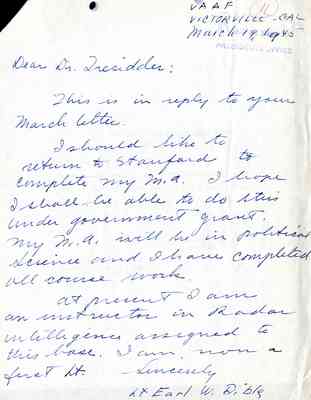 VAAF
VICTORVILLE - CAL
March 19, 1945
Dear Dr. Tresidder:
This is in reply to your
March letter.
I should like to
return to Stanford to
complete my M.A. I hope
I shall be able to do this
under government grant.
My M.A. will be in political
science and I have completed
all course work.
At present I am
an instructor in Radar
intelligence assigned to
this base. I am now a
first Lt. Sincerely
Lt Earl W. Dible